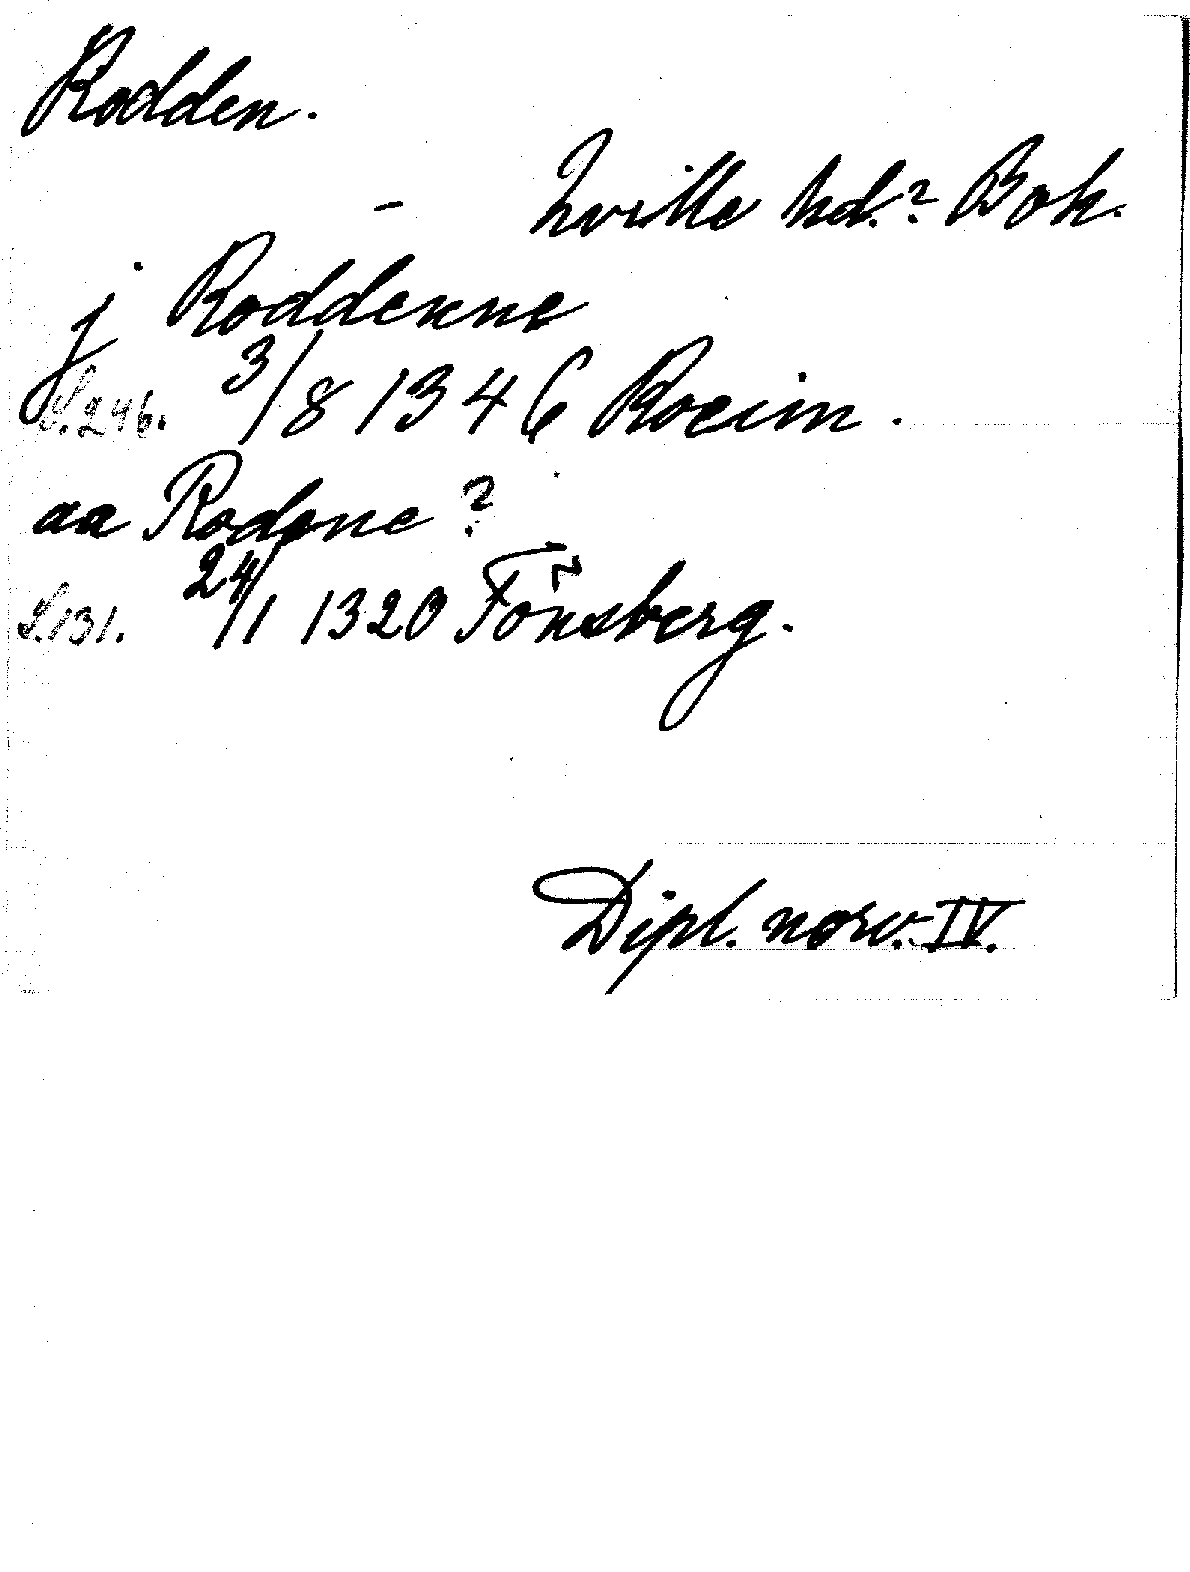 Rodden.
- Kville hd.? Boh.
j Roddenne
S. 246. 3/8 1346 Roeim.
aa Rodone?
S. 131. 24/1 1320 Tönsberg.
Dipl. norv. IV.